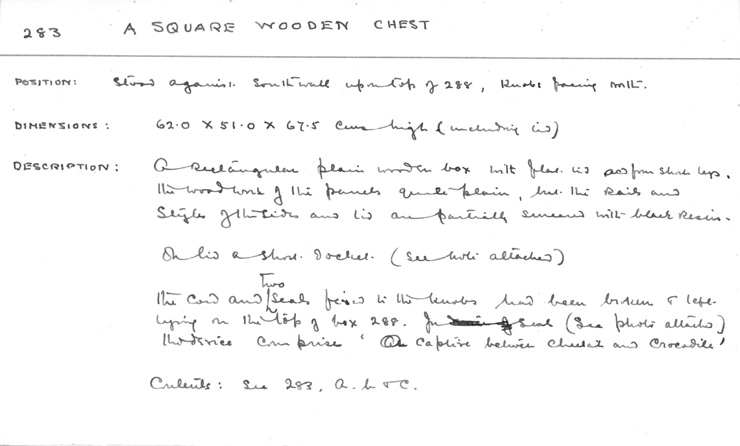 283 A SQUARE WOODEN CHEST
POSITION: Stood against South wall upon top of 288, Knobs facing north.
DIMENSIONS: 62.0 X 51.0 X 67.5 Cms high (including lid)
DESCRIPTION: A Rectangular plain wooden box with flat lid and four short legs.
The woodwork of the panels quite plain, but the Rails and
Styles of the sides and lid are partially smeared with black Resin.
On lid a short Docket. (See note attached)
The Cord and Two Seals fixed to the knobs had been broken & left
lying on the top of box 288. Seal (See photo attached)
the device Comprise ' Captive between and Crocodile'
Contents: See 283, a. b & c.